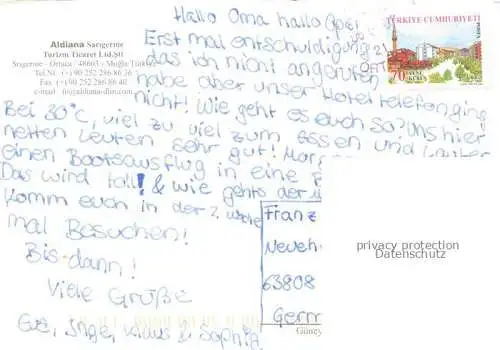 Hallo Oma hallo Opa!
Erst mal entschuldigung
das ich nicht angerufen
habe aber unser Hoteltelefon ging
nicht! Wie geht es euch so? Uns hier
Bei 30°C, viel zu viel zum essen und
netten Leuten sehr gut!
einen Bootsausflug in eine
Das wird toll! & wie gehts der
Komm euch in der 2. Woche
mal Besuchen!
Bis dann!
Viele Grüße
Eve, Inge, Klaus & Sophia
Aldiana Sarıgerme
Turizm Ticaret Ltd.Şti
Sarıgerme - Ortaca / 48603 - Muğla/Türkiye
Tel.Nr. (+) 90 252 286 86 36
Fax (+) 90 252 286 86 40
TÜRKİYE CUMHURİYETİ
70
Franz
Neueh
63808
Germ
privacy protection
Datenschutz
Güney